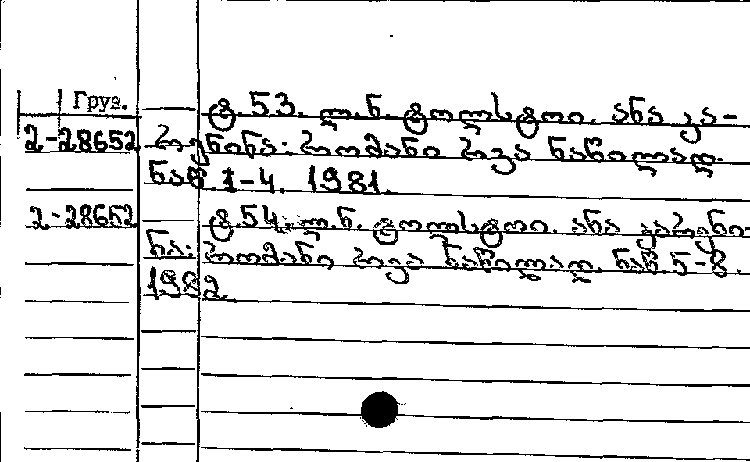 Груз.
ტ. 53. ლ.ნ. ტოლსტოი. ანა კა-
2-28652 რენინა: რომანი რვა ნაწილად.
ნაწ. 1-4. 1981.
2-28652 ტ. 54. ლ.ნ. ტოლსტოი. ანა კარენი-
ნა: რომანი რვა ნაწილად. ნაწ. 5-8.
1982.